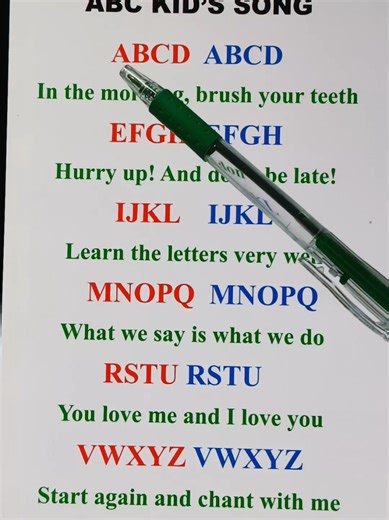 ABC KID'S SONG
ABCD ABCD
In the brush your teeth
EFGH EFGH
Hurry up! And be late!
IJKL IJKL
Learn the letters very
MNOPQ MNOPQ
What we say is what we do
RSTU RSTU
You love me and I love you
VWXYZ VWXYZ
Start again and chant with me